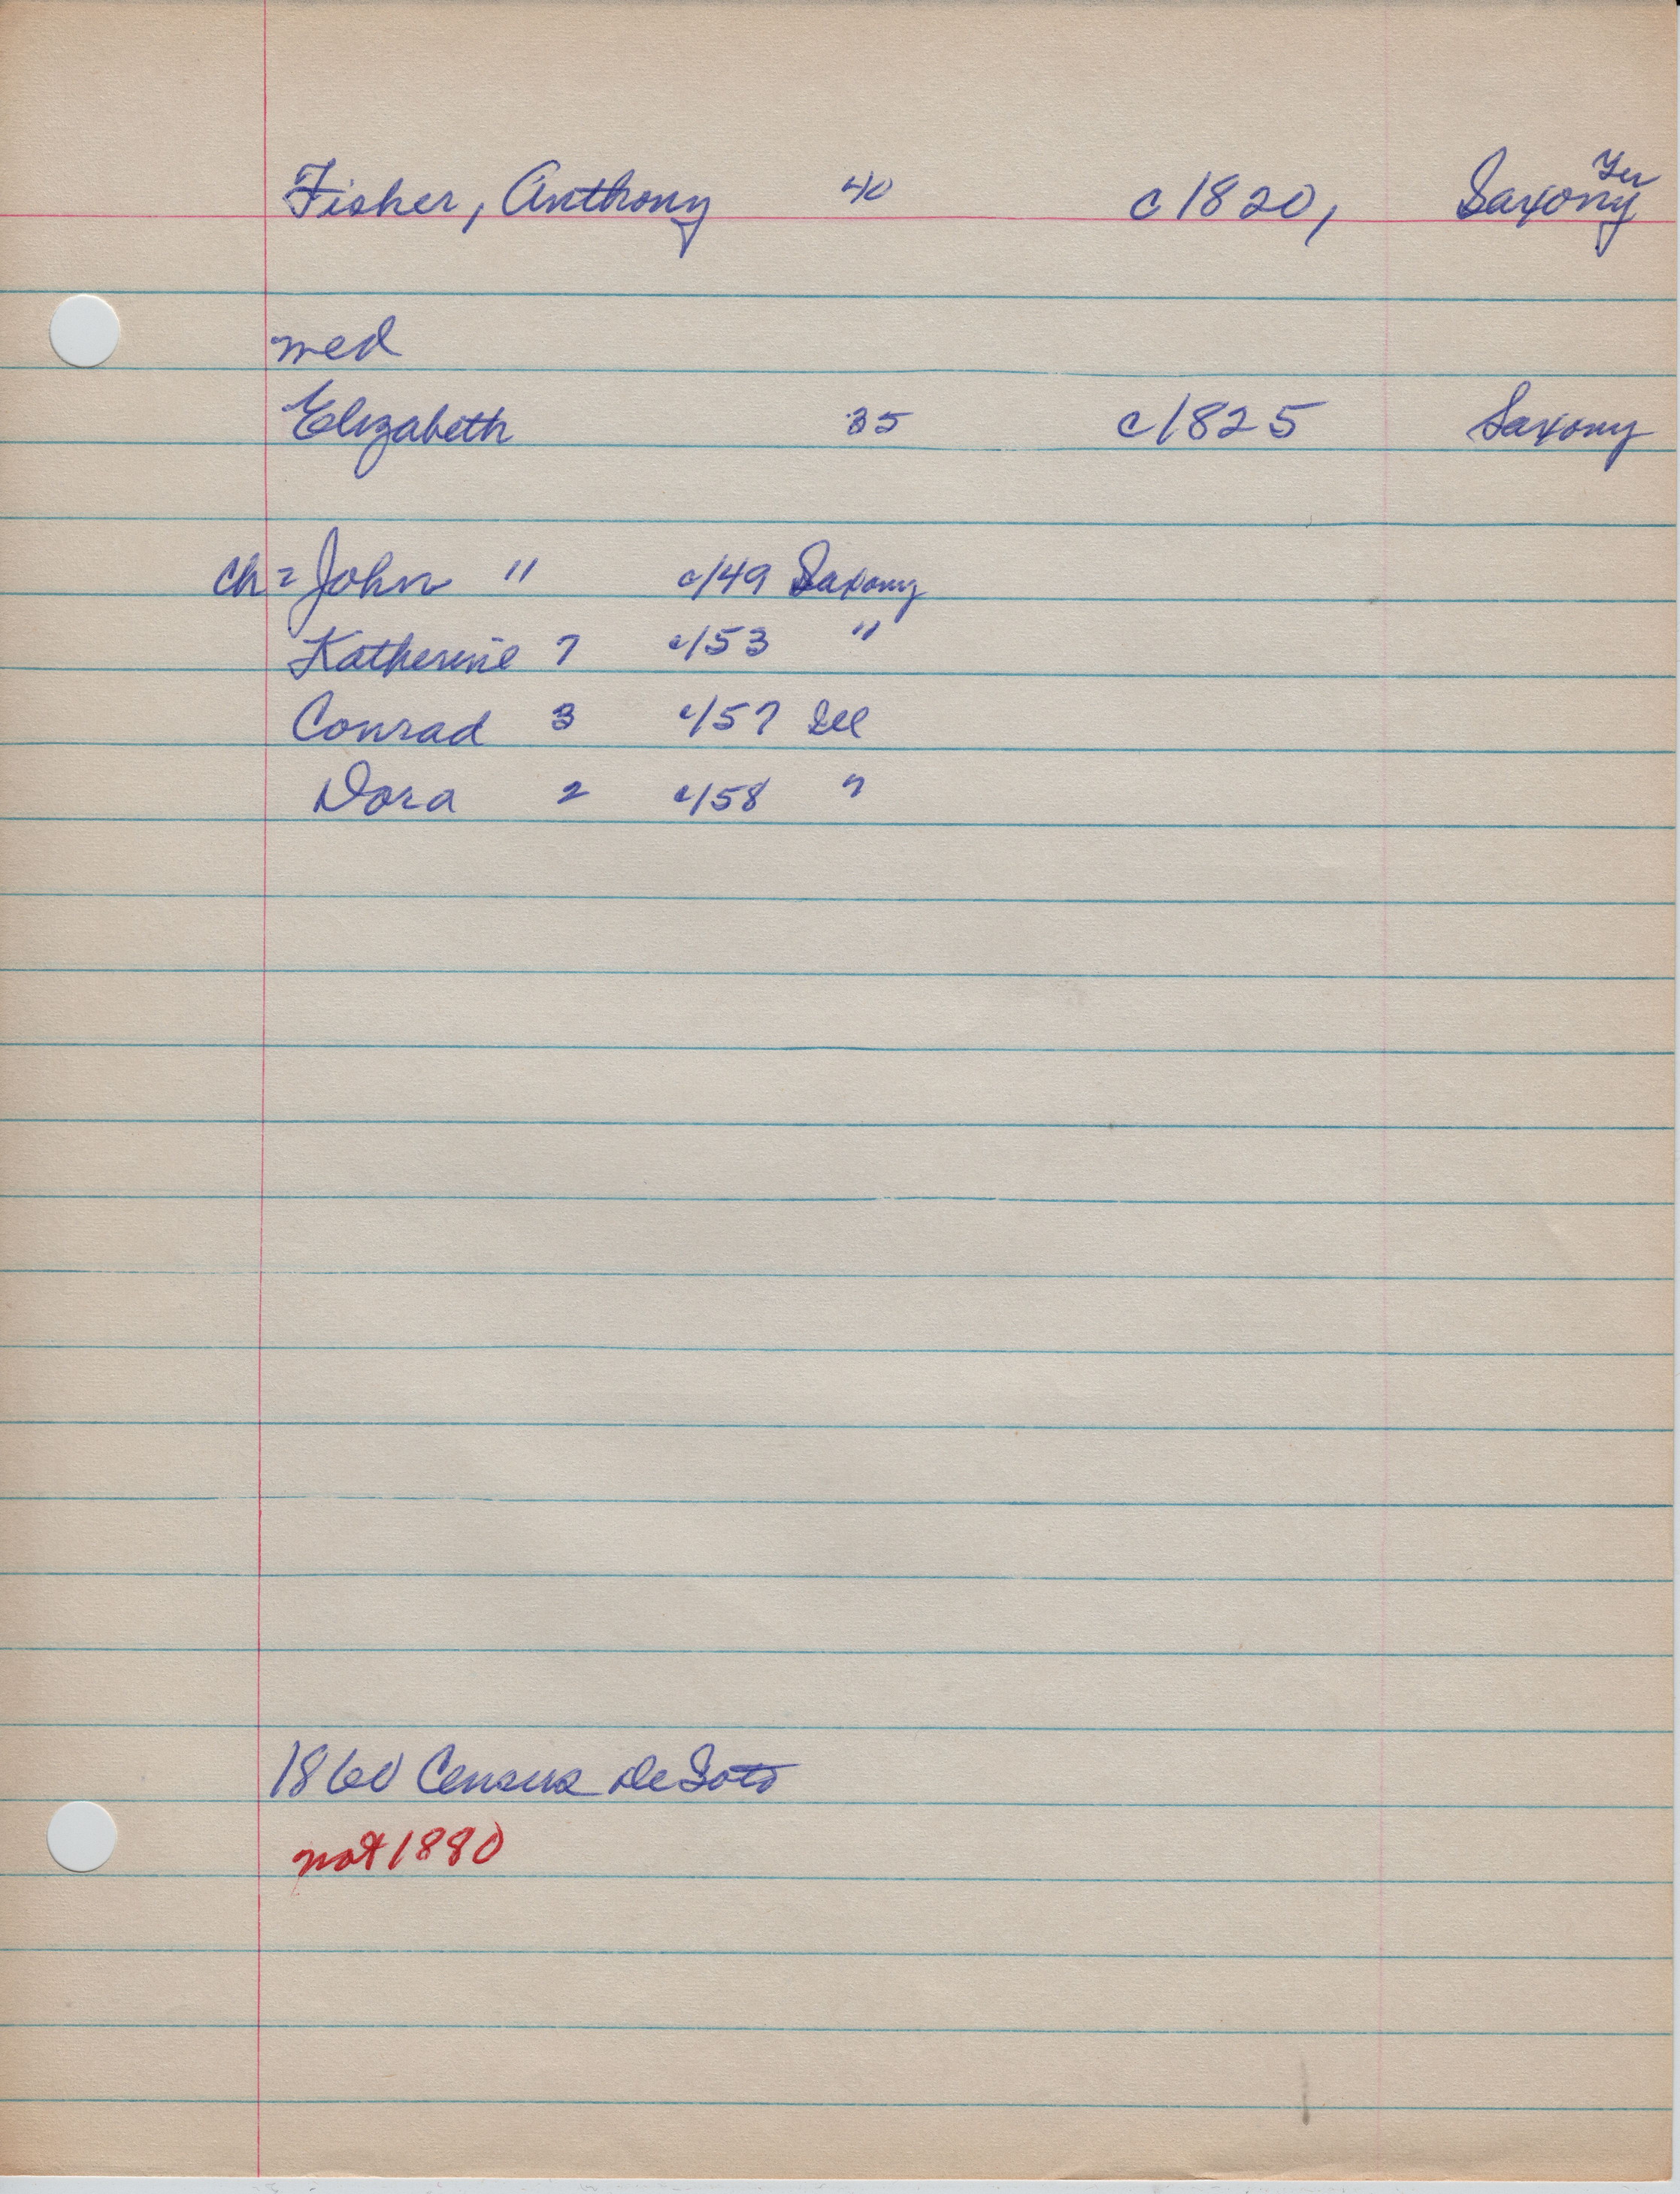 Fisher, Anthony 40 c 1820, Saxony Ger
med
Elizabeth 35 c/825 Saxony
ch = John 11 c/49 Saxony
Katherine 7 c/53 "
Conrad 3 c/57 Ill
Dora 2 c/58 "
1860 Census DeSoto
not 1880